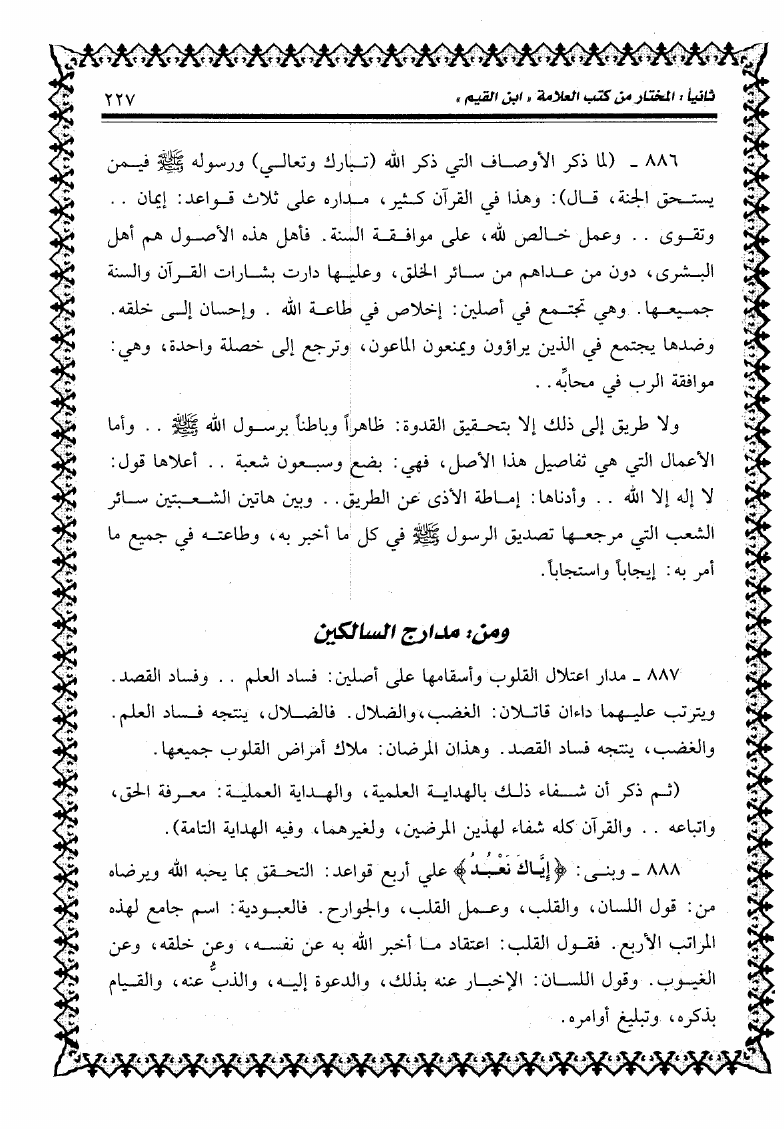 ثانياً : المختار من كتب العلامة « ابن القيم » ٢٢٧
٨٨٦ ـ (لما ذكر الأوصاف التي ذكر الله (تبارك وتعالى) ورسوله ﷺ فيمن
يستحق الجنة، قال): وهذا في القرآن كثير، مداره على ثلاث قواعد: إيمان . .
وتقوى . . وعمل خالص لله، على موافقة السنة. فأهل هذه الأصول هم أهل
البشرى، دون من عداهم من سائر الخلق، وعليها دارت بشارات القرآن والسنة
جميعها. وهي تجتمع في أصلين: إخلاص في طاعة الله . وإحسان إلى خلقه.
وضدها يجتمع في الذين يراؤون ويمنعون الماعون، وترجع إلى خصلة واحدة، وهي:
موافقة الرب في محابِّه. .
ولا طريق إلى ذلك إلا بتحقيق القدوة: ظاهراً وباطناً برسول الله ﷺ . . وأما
الأعمال التي هي تفاصيل هذا الأصل، فهي: بضع وسبعون شعبة . . أعلاها قول:
لا إله إلا الله . . وأدناها: إماطة الأذى عن الطريق. . وبين هاتين الشعبتين سائر
الشعب التي مرجعها تصديق الرسول ﷺ في كل ما أخبر به، وطاعته في جميع ما
أمر به: إيجاباً واستجاباً.
ومن: مدارج السالكين
٨٨٧ ـ مدار اعتلال القلوب وأسقامها على أصلين: فساد العلم . . وفساد القصد.
ويترتب عليهما داءان قاتلان: الغضب،والضلال. فالضلال، ينتجه فساد العلم.
والغضب، ينتجه فساد القصد. وهذان المرضان: ملاك أمراض القلوب جميعها.
(ثم ذكر أن شفاء ذلك بالهداية العلمية، والهداية العملية: معرفة الحق،
واتباعه . . والقرآن كله شفاء لهذين المرضين، ولغيرهما، وفيه الهداية التامة).
٨٨٨ ـ وبنى: ﴿إِيَّاكَ نَعْبُدُ﴾ علي أربع قواعد: التحقق بما يحبه الله ويرضاه
من: قول اللسان، والقلب، وعمل القلب، والجوارح. فالعبودية: اسم جامع لهذه
المراتب الأربع. فقول القلب: اعتقاد ما أخبر الله به عن نفسه، وعن خلقه، وعن
الغيوب. وقول اللسان: الإخبار عنه بذلك، والدعوة إليه، والذبُّ عنه، والقيام
بذكره، وتبليغ أوامره.